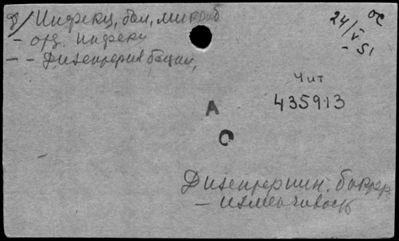 д/ Инфекц, бол, микроб
- отд. инфекц
- - Дизентерия бацил,
ос
24/V-51
Чит
435913
А
С
Дизентерийн. бактер.
- изменчивость